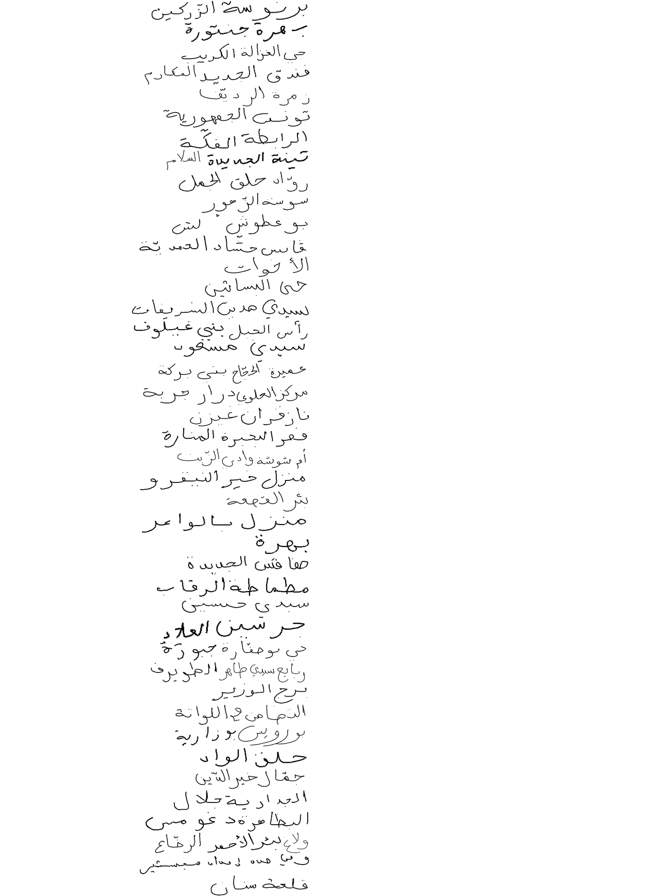 برنوسة الزركين
بهرة جنتورة
حي الغزالة الكريب
فندق الجديد المكارم
زمرة الرديف
تونس الجمهورية
الرابطة الفكة
تينة الجديدة السلام
روّاد حلق الجمل
سوسة الزهور
بو عطوش
قابس حشّاد العمديّة
الأخوات
حي البساتين
سيدي مدين الشريفات
رأس الجبل بنبي غيلوف
سيدي مسعود
عميرة الحجاج بني بركة
مركز العلوي درار جربة
نازفران غيزن
قفر البحيرة المنارة
أم شوشة وادي الزيت
منزل خير النيفرو
بئر القهعة
منزل بالواعر
بهرة
صفاقس الجديدة
مطماطة الرقاب
سيدي حسين
جرسين
حي بوصفارة
سيدي طاهر الطويرف
برج الوزير
التضامن اللواتة
بورويس بوزارية
حلق الواد
حفال خير الدين
الجدارية جلال
البطاهرة دغومس
بئر الأحمر الرضاع
قلعة سنان